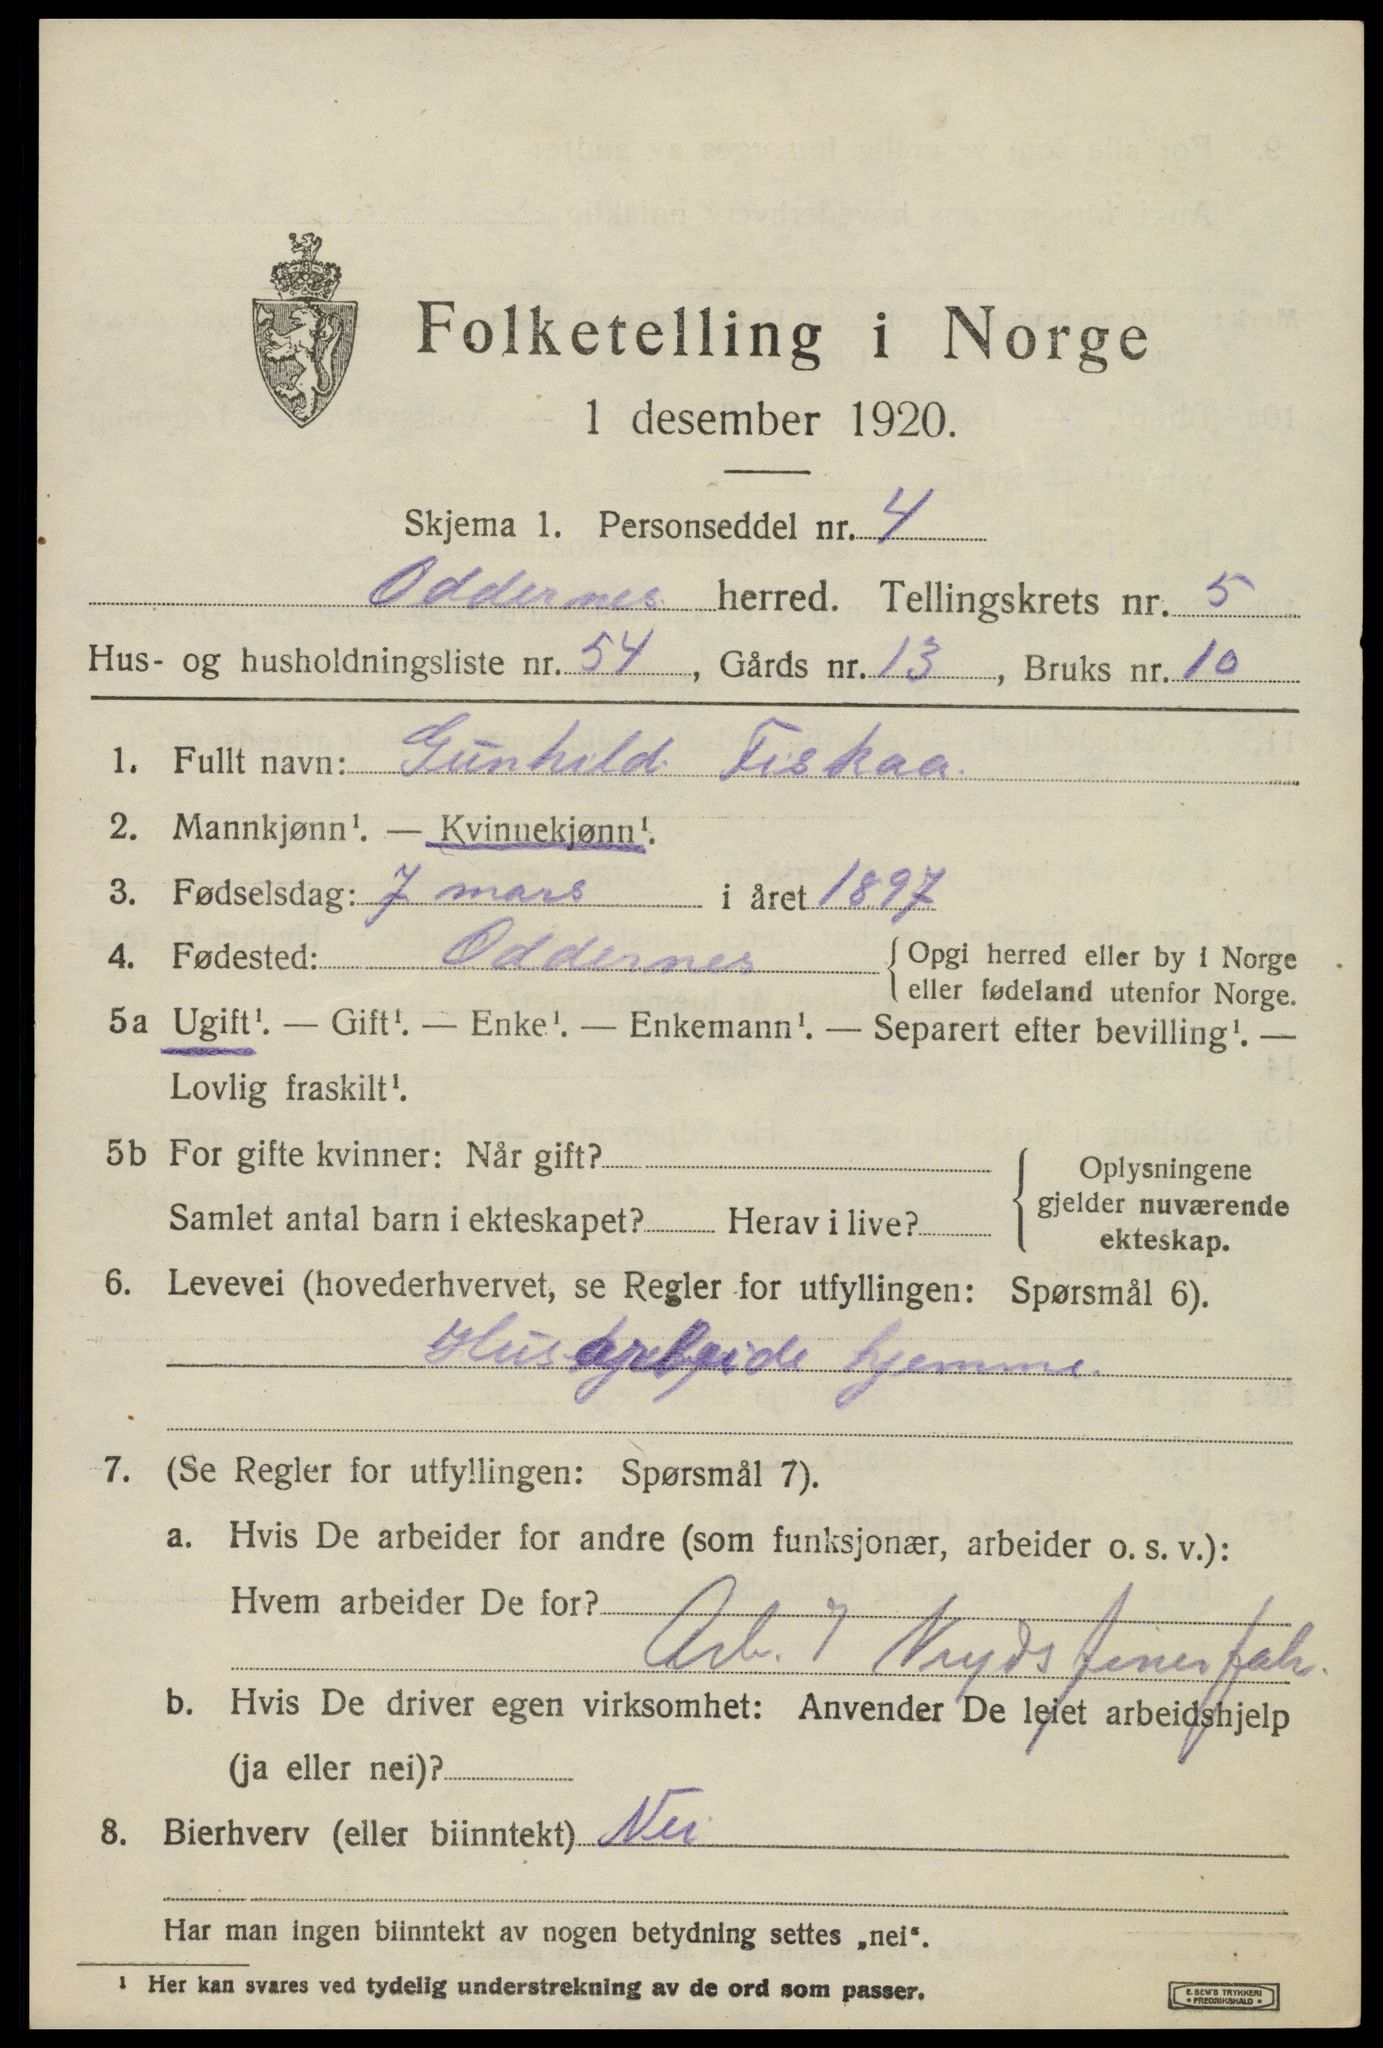 Folketelling i Norge
1 desember 1920.
Skjema 1. Personseddel nr. 4
Oddernes herred. Tellingskrets nr. 5
Hus- og husholdningsliste nr. 54, Gårds nr. 13, Bruks nr. 10
1. Fullt navn: Gunhild Fiskaa.
2. Mannkjønn¹. — Kvinnekjønn¹.
3. Fødselsdag: 7 mars i året 1897
4. Fødested: Oddernes { Opgi herred eller by i Norge
eller fødeland utenfor Norge.
5a Ugift¹. — Gift¹. — Enke¹. — Enkemann¹. — Separert efter bevilling¹. —
Lovlig fraskilt¹.
5b For gifte kvinner: Når gift?
Samlet antal barn i ekteskapet? Herav i live?
Oplysningene
gjelder nuværende
ekteskap.
6. Levevei (hovederhvervet, se Regler for utfyllingen: Spørsmål 6).
Husarbeide hjemme.
7. (Se Regler for utfyllingen: Spørsmål 7).
a. Hvis De arbeider for andre (som funksjonær, arbeider o. s. v.):
Hvem arbeider De for?
Arb.
b. Hvis De driver egen virksomhet: Anvender De leiet arbeidshjelp
(ja eller nei)?
8. Bierhverv (eller biinntekt) Nei
Har man ingen biinntekt av nogen betydning settes „nei“.
¹ Her kan svares ved tydelig understrekning av de ord som passer.
E. SEM'S TRYKKERI
• FREDRIKSHALD •